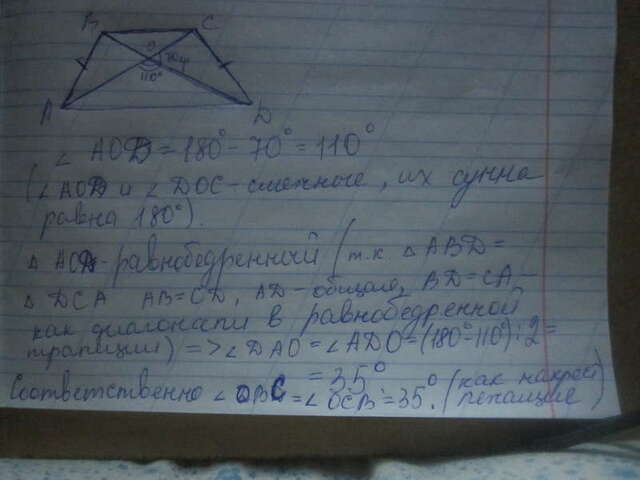 B C
O
70°
110°
A D
∠ AOD = 180° - 70° = 110°
(∠ AOD и ∠ DOC - смежные, их сумма
равна 180°).
△ AOD - равнобедренный (т.к. △ ABD =
△ DCA AB = CD, AD - общая, BD = CA -
как диагонали в равнобедренной
трапеции) => ∠ DAO = ∠ ADO = (180° - 110°) : 2 =
= 35°
Соответственно ∠ OBC = ∠ OCB = 35°. (как накрест
лежащие)